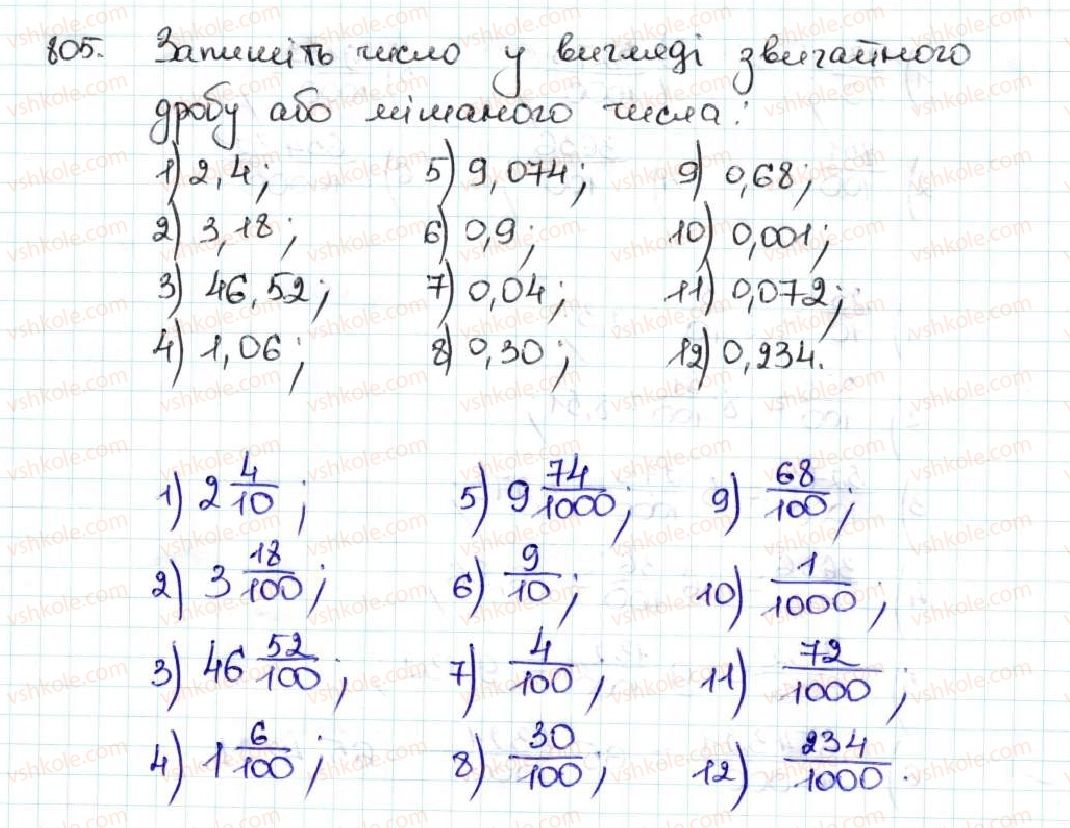 805. Запишіть число у вигляді звичайного
дробу або мішаного числа:
1) 2,4; 5) 9,074; 9) 0,68;
2) 3,18; 6) 0,9; 10) 0,001;
3) 46,52; 7) 0,04; 11) 0,072;
4) 1,06; 8) 0,30; 12) 0,234.
1) 2 4/10; 5) 9 74/1000; 9) 68/100;
2) 3 18/100; 6) 9/10; 10) 1/1000;
3) 46 52/100; 7) 4/100; 11) 72/1000;
4) 1 6/100; 8) 30/100; 12) 234/1000.